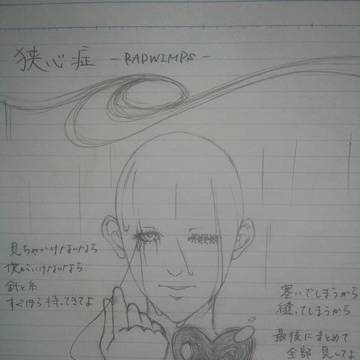 狭心症 -RADWIMPS-
見ちゃいけないなら
僕がいけないなら
針と糸
すぐほら 持ってきてよ
塞いでしまうから
縫ってしまうから
最後にまとめて
全部 見してよ